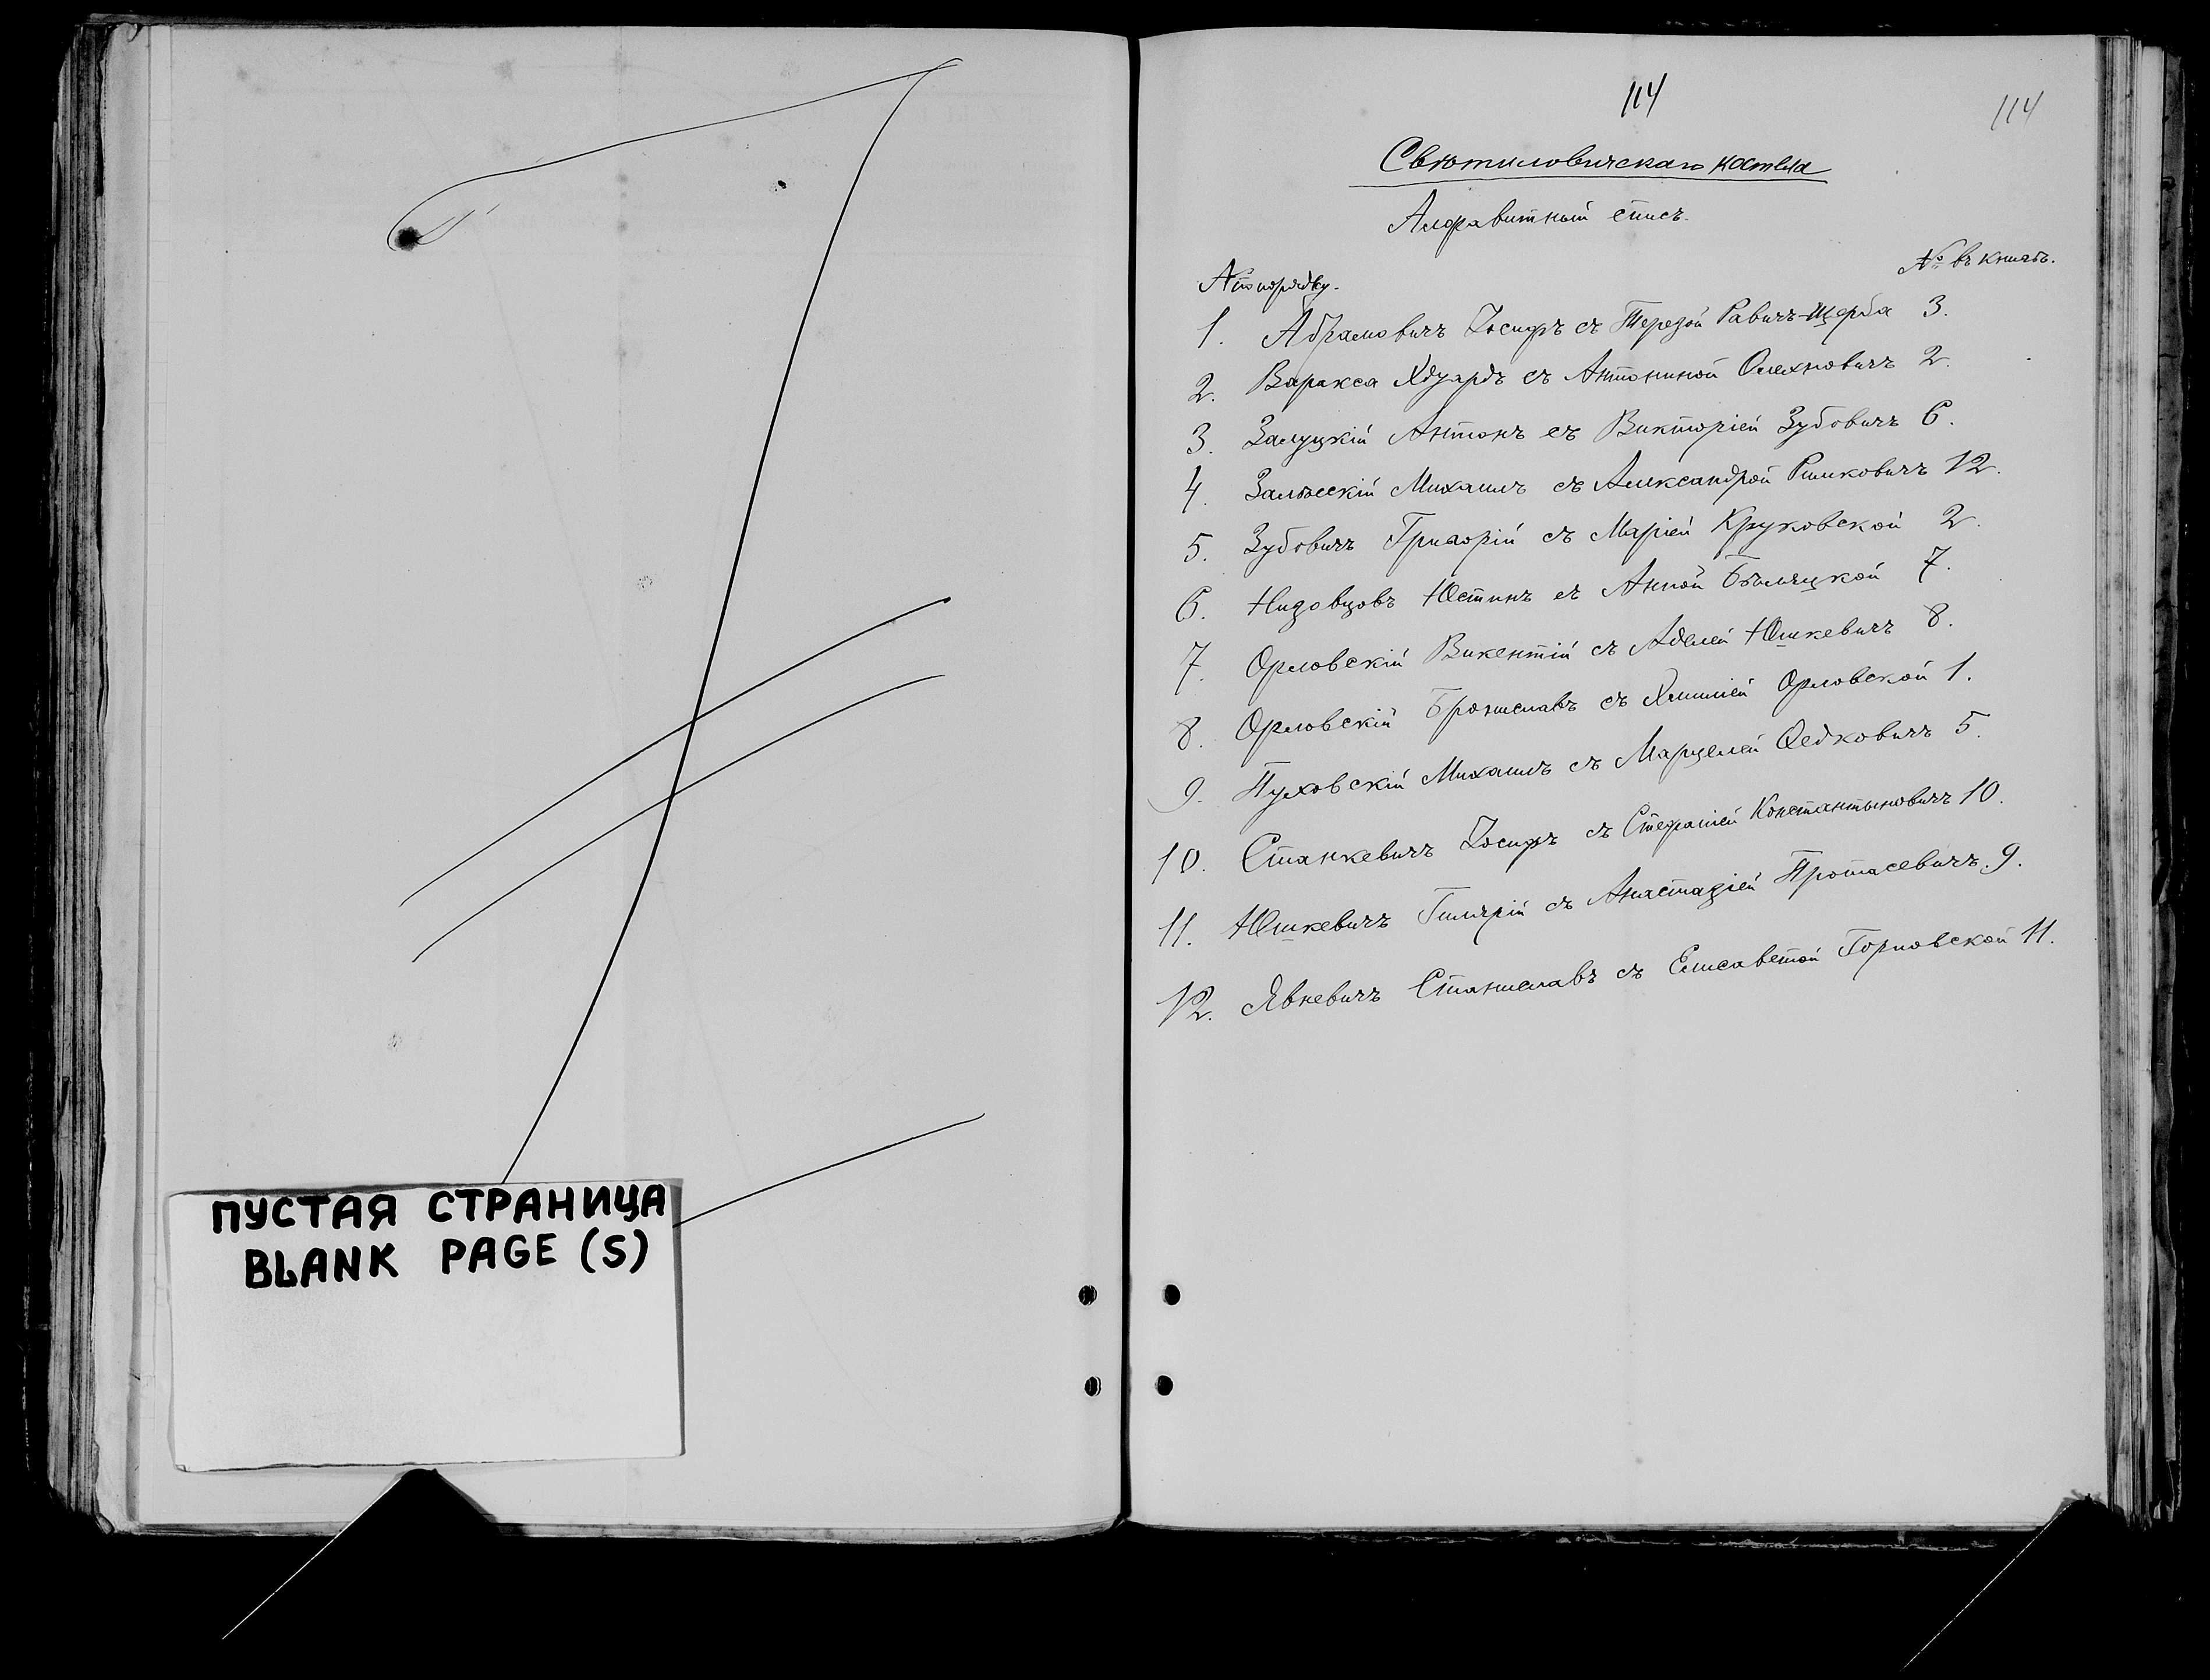 ПУСТАЯ СТРАНИЦА
BLANK PAGE (S)
114
114
Свѣтиловичскаго костела
Алфавитный спис.
№ по порядку.
№ въ книгѣ.
1. Абрамовичъ Іосифъ съ Терезой Равичъ-Щерба 3.
2.Варакса Эдуардъ съ Антониной Олехновичъ 2.
3. Залуцкій Антонъ съ Викторіей Зубовичъ 6.
4. Залѣсскій Михаилъ съ Александрой Римковичъ 12.
5. Зубовичъ Григорій съ Маріей Круковской 2.
6. Низовцовъ Юстинъ съ Анной Бѣляцкой 7.
7. Орловскій Викентій съ Аделей Юшкевичъ 8.
8. Орловскій Брониславъ съ Эмиліей Орловской 1.
9. Пуховскій Михаилъ съ Марцелей Федковичъ 5.
10. Станкевичъ Іосифъ съ Стефаніей Константыновичъ 10.
11. Юшкевичъ Гилярій съ Анастазіей Протасевичъ. 9.
12. Явневичъ Станиславъ съ Елисаветой Горновской 11.